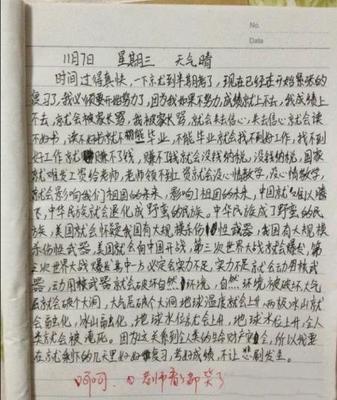 No.
Date
11月7日 星期三 天气晴
时间过得真快,一下就到半期考了,现在已经在开始紧张的
复习了,我必须要开始努力了,因为我如果不努力,成绩就上不去,我成绩上
不去,就会被家长骂,我被家长骂,就会失去信心,失去信心就会读
不好书,读不好书就不能毕业,不能毕业就会找不到好工作,找不到
好工作就赚不了钱,赚不了钱就会没钱纳税,没钱纳税,国家
就难发工资给老师,老师领不到工资就会没心情教学,没心情教学,
就会影响我们祖国的未来,影响了祖国的未来,中国就难以腾
飞,中华民族就会退化成野蛮的民族。中华民族成了野蛮的民
族,美国就会怀疑我国有大规模杀伤性武器,我国有大规模
杀伤性武器,美国就会向中国开战,第三次世界大战就会爆发,第
三次世界大战爆发其中一方必定会实力不足,实力不足就会动用核武
器,动用核武器就会破坏自然环境,自然环境被破坏大气
层就会破个大洞,大气层破个大洞地球温度就会上升,两极冰山就
会融化,冰山融化,地球水位就会上升,地球水位上升,全人
类就会被淹死。因为这关系到全人类的生命财产安全,所以我要
在剩下的几天里好好复习,考好成绩,不让悲剧发生。
呵呵,老师看了都笑了